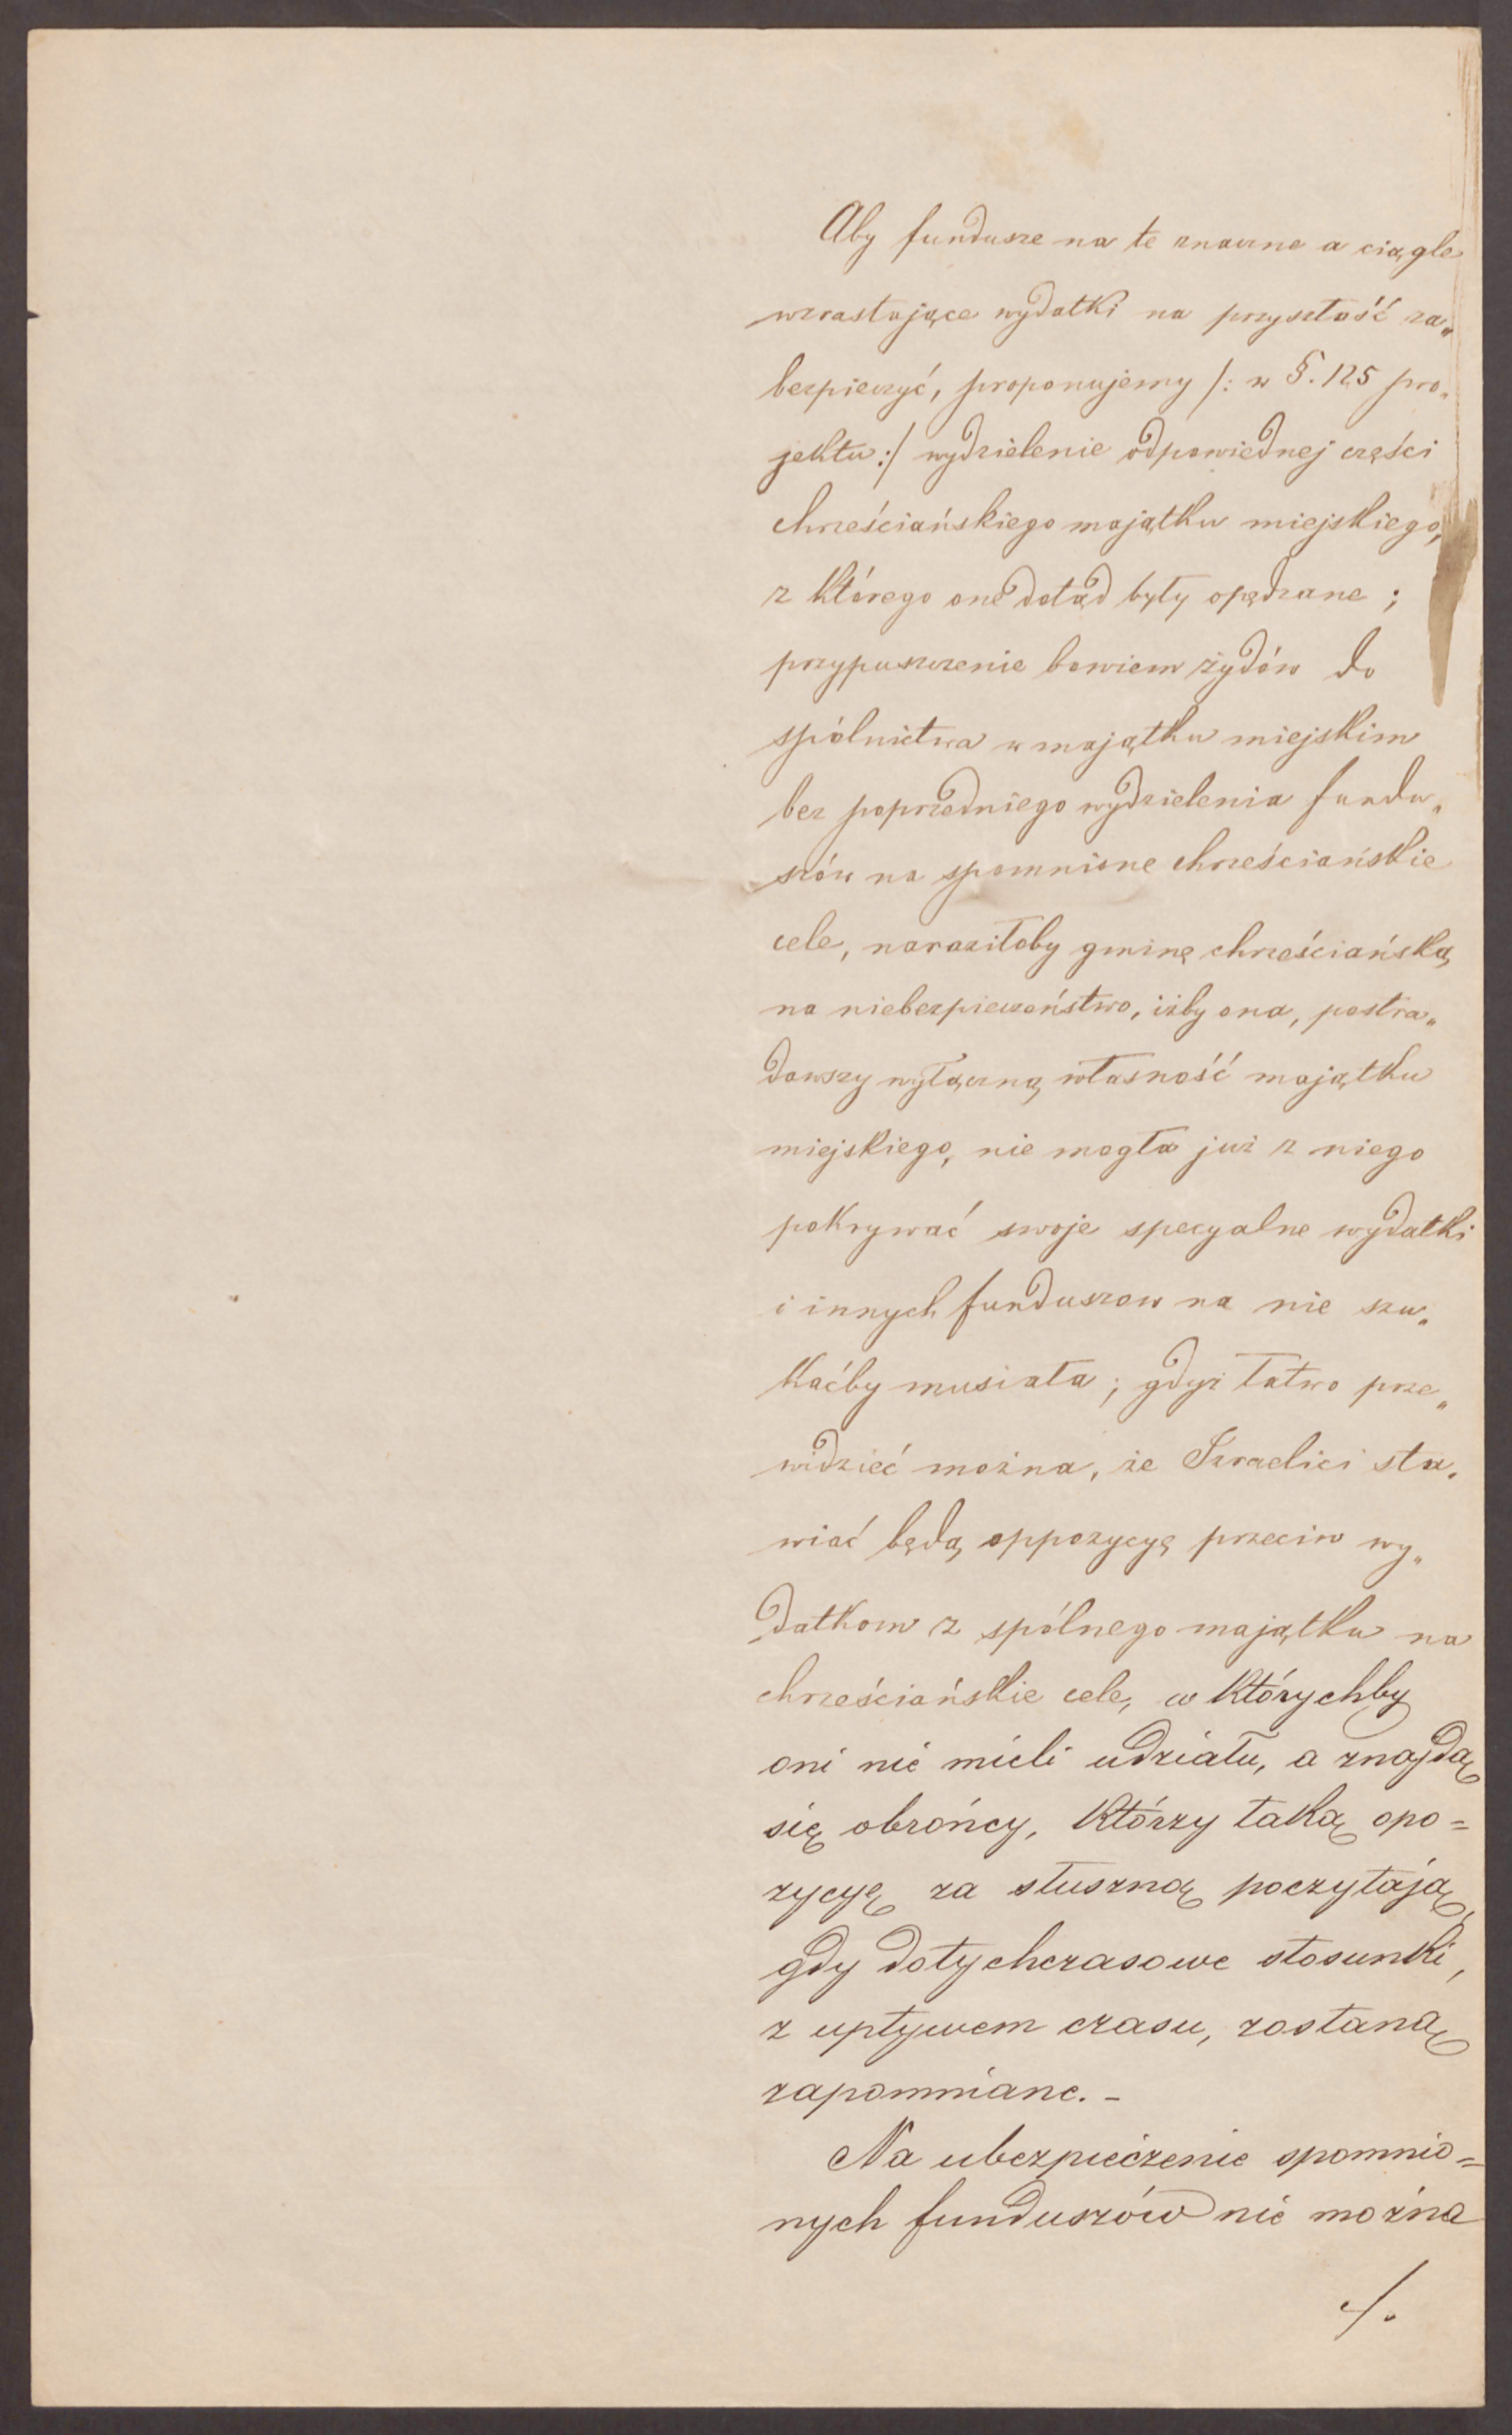 Aby fundusze na te znaczne a ciągle
wzrastające wydatki na przyszłość za„
bezpieczyć, proponujemy /: w §. 125 pro„
jektu :/ wydzielenie odpowiednej części
chrześciańskiego majątku miejskiego,
z którego one dotąd były opędzane ;
przypuszczenie bowiem żydów do
spólnictwa w majątku miejskim
bez poprzedniego wydzielenia fundu„
szów na spomnione chrześciańskie
cele, naraziłoby gminę chrześciańską
na niebezpieczeństwo, iżby ona, postra„
dawszy wyłączną własność majątku
miejskiego, nie mogła już z niego
pokrywać swoje specyalne wydatki
i innych funduszow na nie szu„
kaćby musiała ; gdyż łatwo prze„
widzieć można, że Izraelici sta„
wiać będą oppozycyę przeciw wy„
datkom z spólnego majątku na
chrześciańskie cele, w którychby
oni nie mieli udziału, a znajdą
się obrońcy, którzy taką opo=
zycyę za słuszną poczytają,
gdy dotychczasowe stosunki,
z upływem czasu, zostaną
zapomniane. –
Na ubezpieczenie spomnio=
nych funduszów nie można
./.